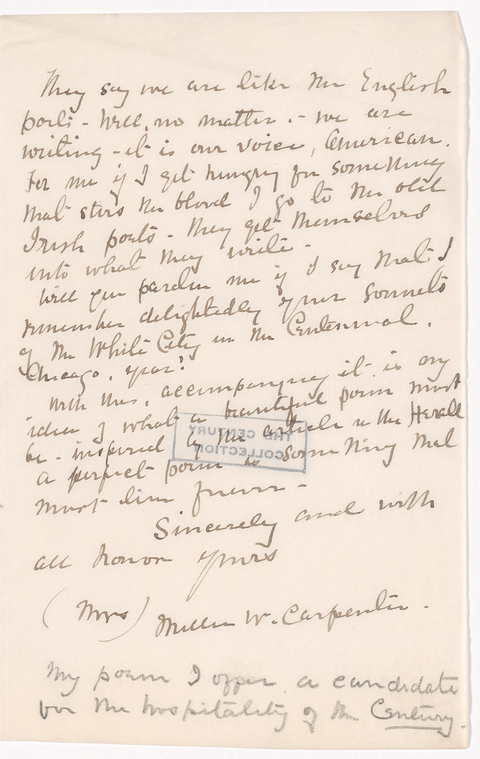 They say we are like the English
poets - Well, no matter - we are
writing - it is our voice, American.
For me if I get hungry for something
that stirs the blood I go to the old
Irish poets - They get themselves
into what they write -
Will you pardon me if I say that I
remember delightedly your Sonnets
of the White City in the Centennial,
Chicago, year?
With this, accompanying it is my
idea of what a beautiful poem must
be - inspired by the article in the Herald
a perfect poem is something that
must live forever -
Sincerely and with
all honor yours
(Mrs) W. Carpenter.
My poem I offer a candidate
for the hospitality of the Century.
THE CENTURY
COLLECTION